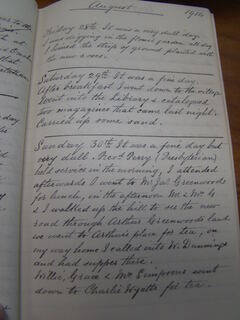 August 1914
Friday 28th It was a very dull day.
I was digging in the flower garden all day
I limed the strip of ground planted with
the new roses.
Saturday 29th It was a fine day.
After breakfast I went down to the village
I went into the Library & catalogued
two magazines that came last night.
Carried up some sand.
Sunday 30th It was a fine day but
very dull. Revd. Perry (Presbyterian)
held service in the morning, I attended
afterwards I went to Mr Jas. Greenwoods
for lunch, in the afternoon Mr & Mrs G
& I walked up the hill to see the new
road through Arthur Greenwoods land
we went to Arthur's place for tea, on
my way home I called into W. Dunnings
and had supper there.
Willie, Grace & Mr Simpson went
down to Charlie Wyatts for tea.